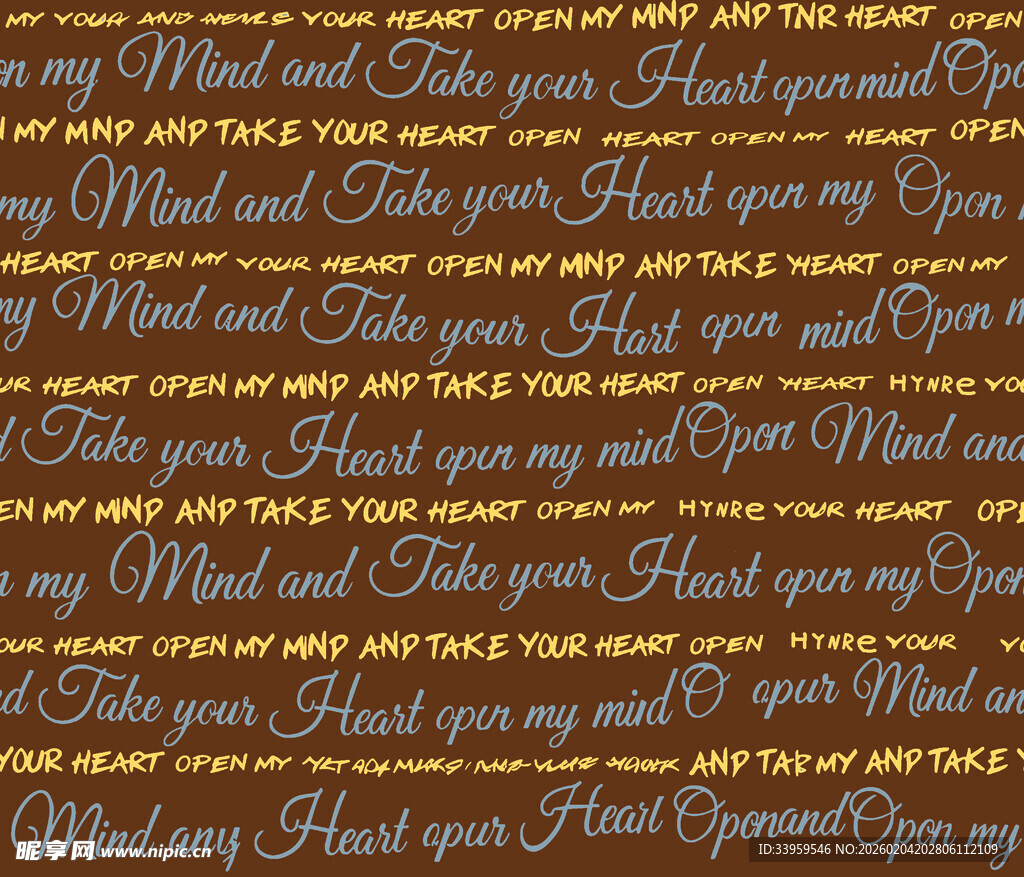 MY YOUR AND YOUR HEART OPEN MY MIND AND TNR HEART OPEN
on my Mind and Take your Heart opun miud Opo
N MY MND AND TAKE YOUR HEART OPEN HEART OPEN MY HEART OPEN
my Mind and Take your Heart opun my Opon
HEART OPEN MY YOUR HEART OPEN MY MND AND TAKE HEART OPEN MY
my Mind and Take your Hart opun miud Opon m
UR HEART OPEN MY MIND AND TAKE YOUR HEART OPEN HEART HYNRe YOU
d Take your Heart opun my miud Opon Mind and
EN MY MIND AND TAKE YOUR HEART OPEN MY HYNRe YOUR HEART OPE
n my Mind and Take your Heart opun my Opon
OUR HEART OPEN MY MIND AND TAKE YOUR HEART OPEN HYNRe YOUR YO
nd Take your Heart opun my miud O opur Mind an
YOUR HEART OPEN MY AND TAB MY AND TAKE Y
Mind any Heart opur Hearl Oponand Opon my
昵享网 www.nipic.cn
ID:33959546 NO:20260204202806112109